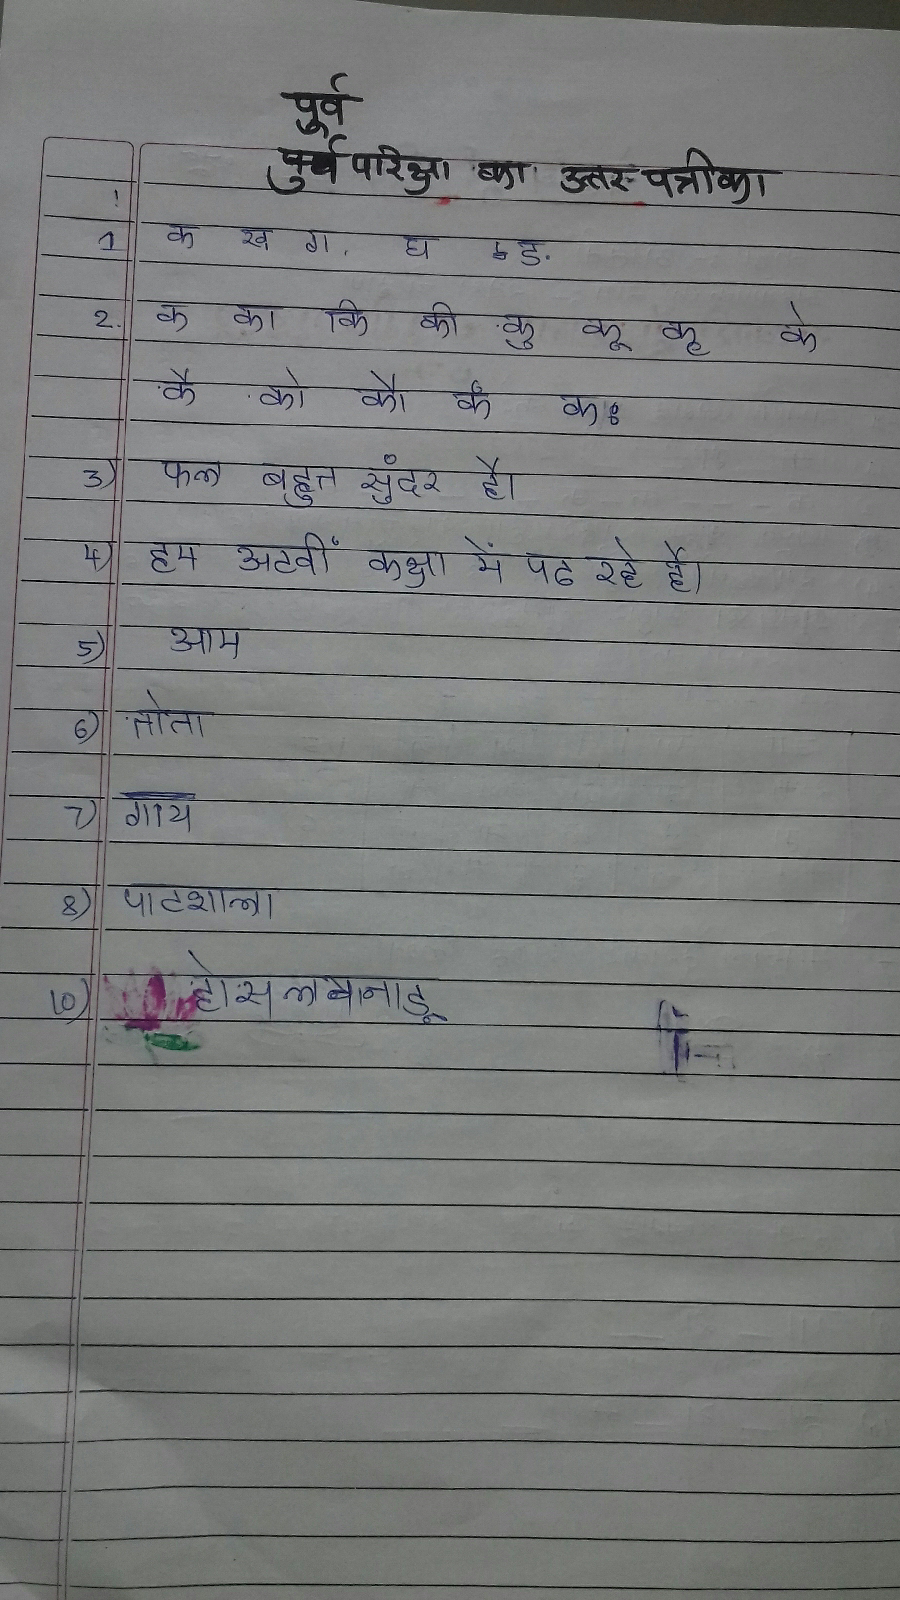 पुर्व
पुर्व परिक्षा का उत्तर पत्रीका
1 क ख ग. घ ङ.
2. क का कि की कु कू कृ के
कै को कौ कं कः
3) फल बहुत सुंदर है।
4) हम अटवीं कक्षा में पढ रहे हैं।
5) आम
6) तोता
7) गाय
8) पाटशाला
10) होसलबानाडू